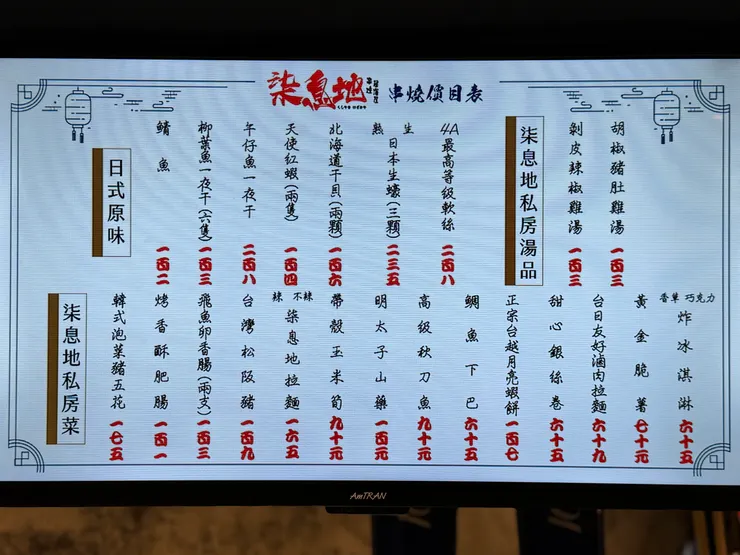 柒息地
串燒價目表
胡椒豬肚雞湯 一百三
剝皮辣椒雞湯 一百三
柒息地私房湯品
4A最高等級軟絲 二百八
生 熟
日本生蠔(三顆) 二三五
北海道干貝(兩顆) 一百六
天使紅蝦(兩隻) 一百四
午仔魚一夜干 二百八
柳葉魚一夜干(六隻) 一百三
鯖魚 一百二
日式原味
香草 巧克力
炸冰淇淋 六十五
黃金脆薯 七十元
台日友好滷肉拉麵 六十九
甜心銀絲卷 六十五
正宗台越月亮蝦餅 一百七
鯛魚下巴 六十五
高級秋刀魚 九十元
明太子山藥 一百五
帶殼玉米筍 九十元
辣 不辣
柒息地拉麵 一六五
台灣松阪豬 一百九
飛魚卵香腸(兩支) 一百三
烤香酥肥腸 一百一
韓式泡菜豬五花 一七五
柒息地私房菜
AmTRAN